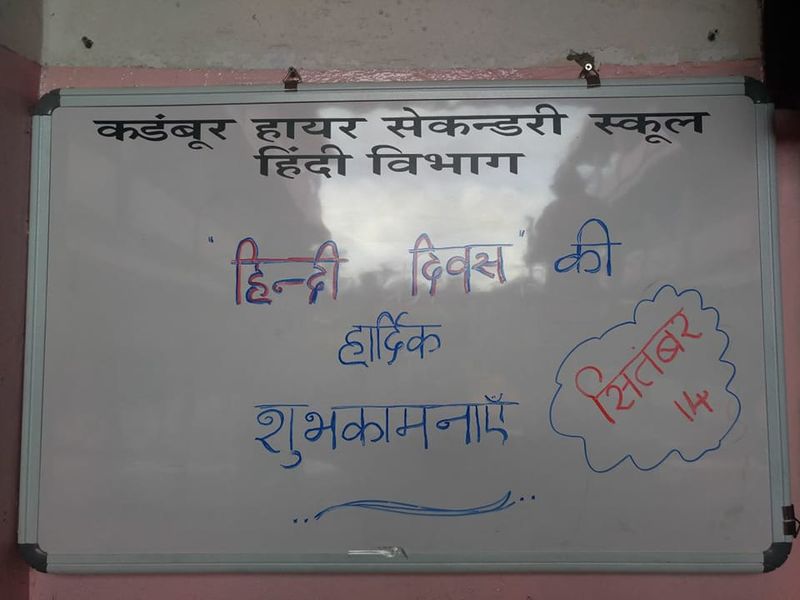 कडंबूर हायर सेकन्डरी स्कूल
हिंदी विभाग
"हिन्दी दिवस" की
हार्दिक
शुभकामनाएँ
सितंबर
14